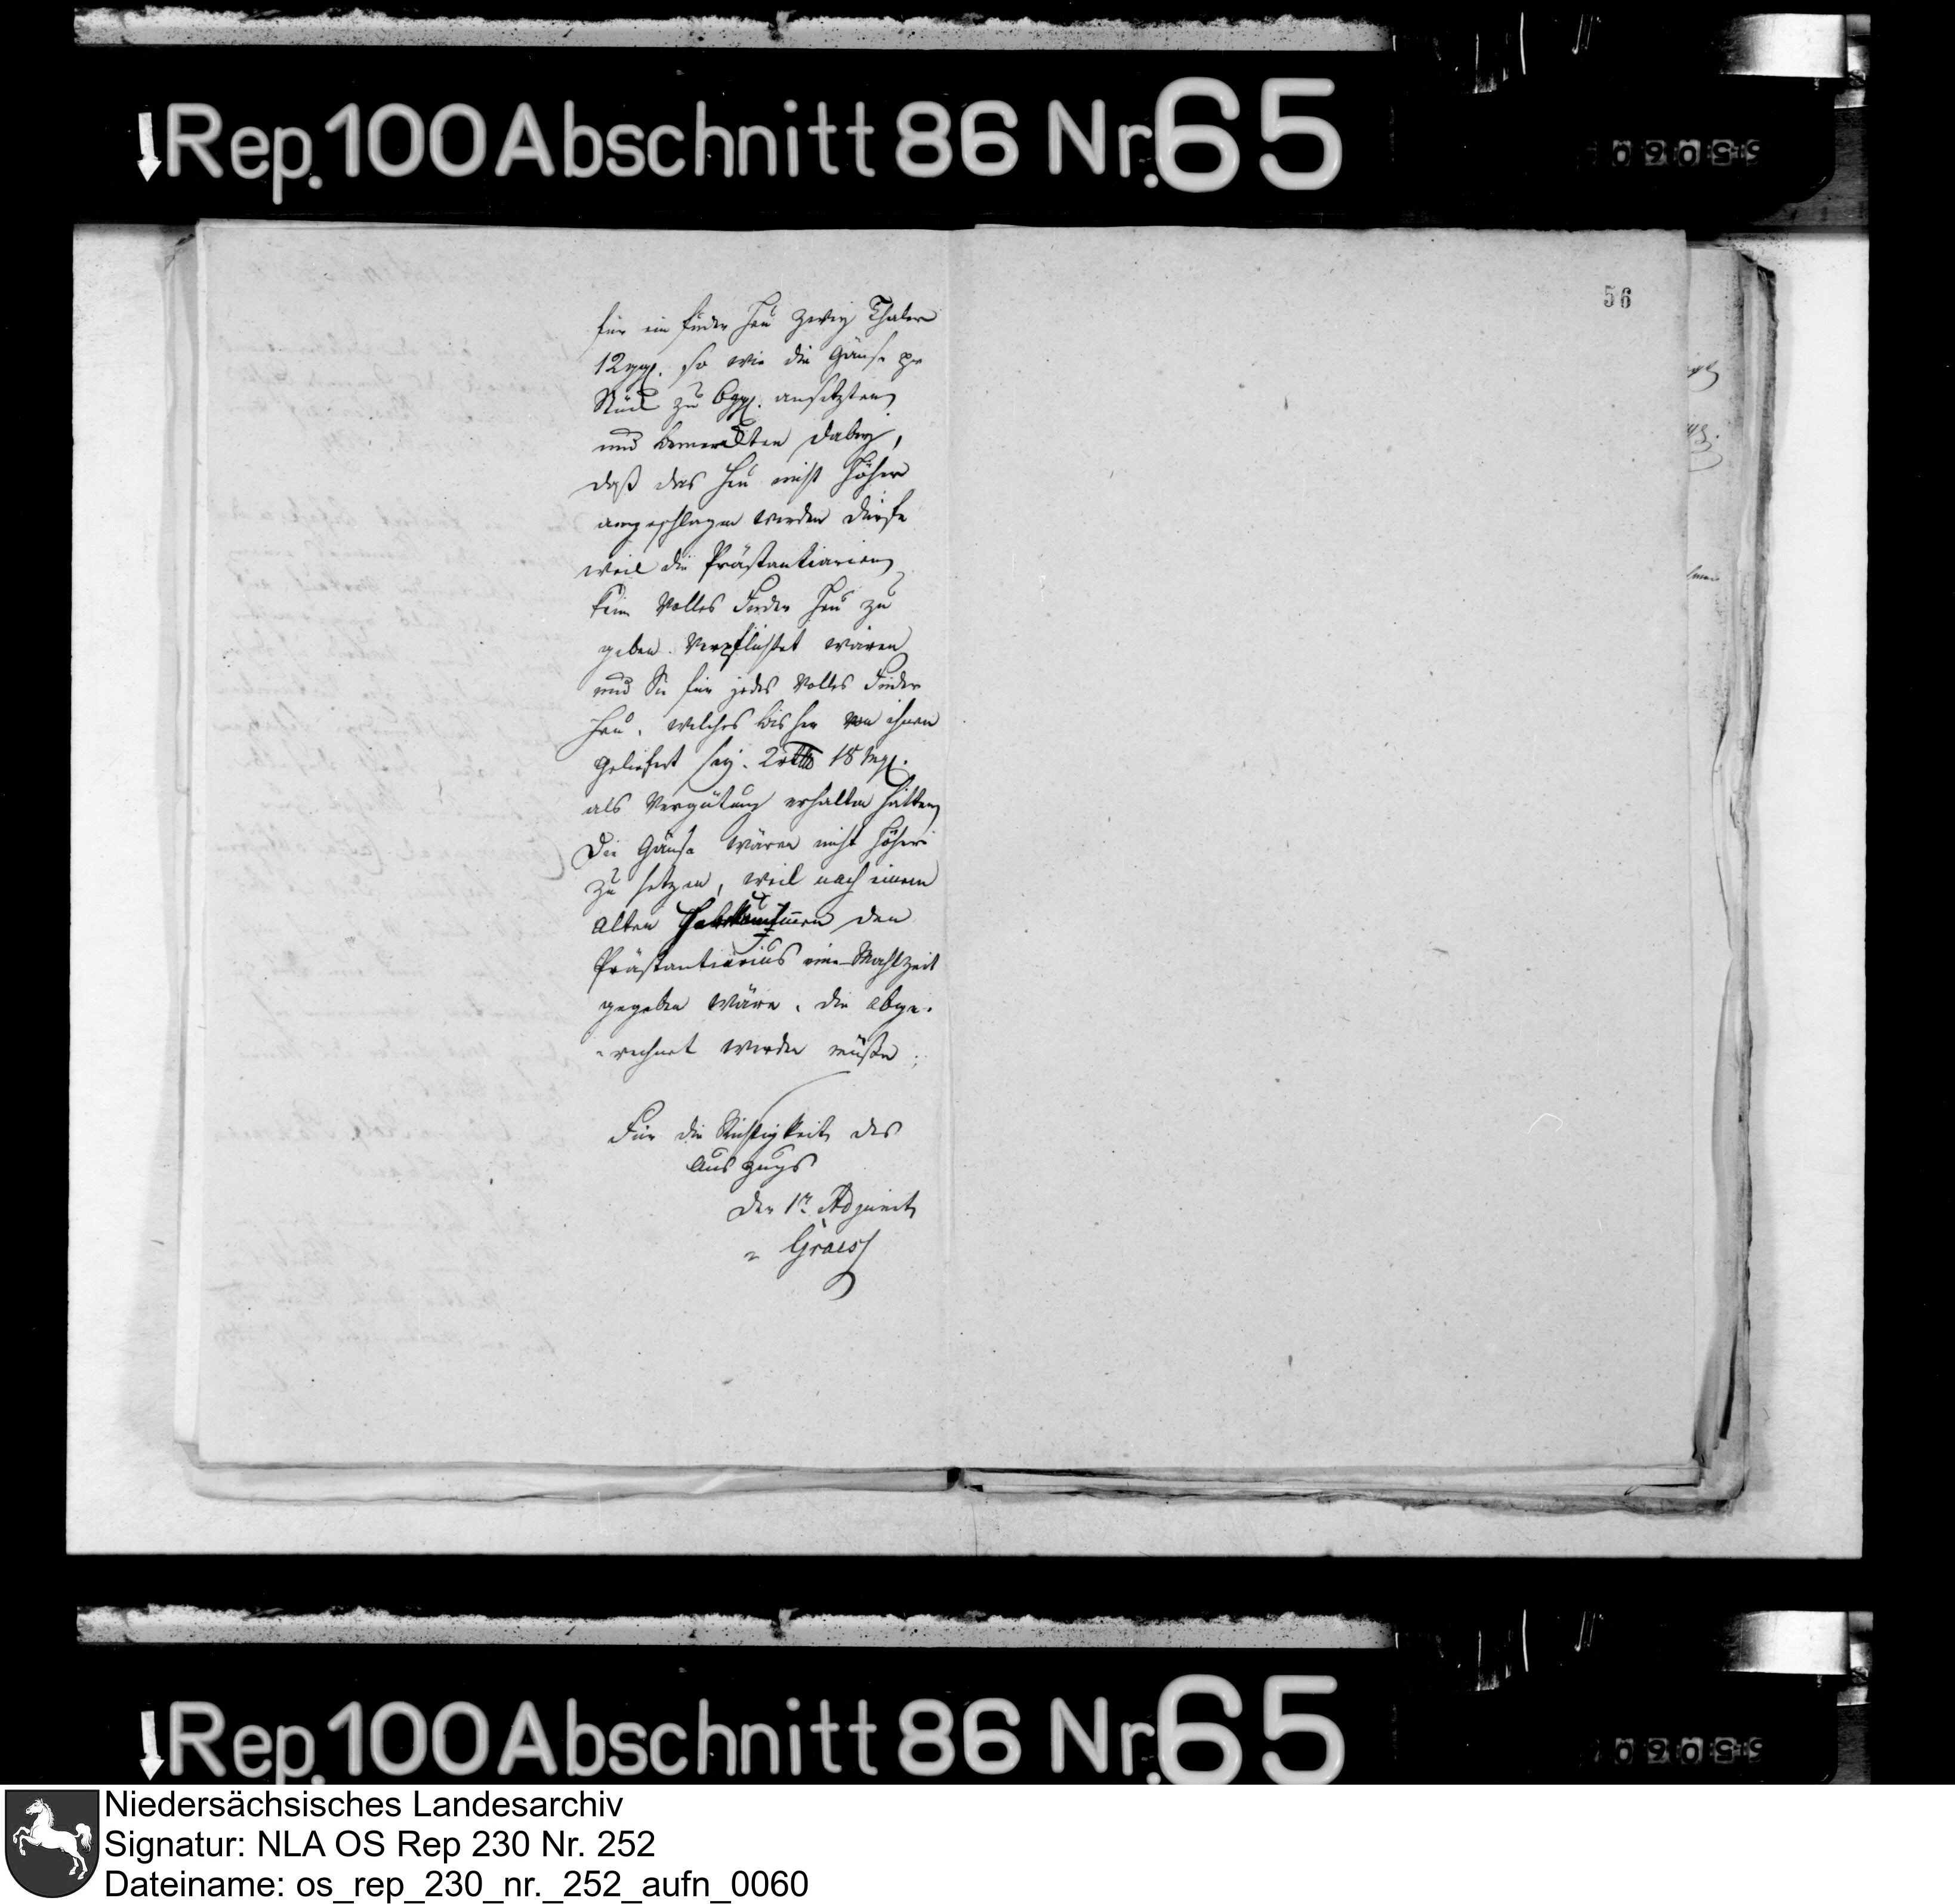 Rep. 100 Abschnitt 86 Nr. 65
56
für ein Fuder Heu zwey Thaler
12 ggl. so wie die Gänse pr
Stück zu 6 ggl. ansetzten
und bemerckten dabey,
daß das Heu nicht höher
angeschlagen werden dürfe
weil die Prästantiarien
kein volles Fuder Heu zu
geben verpflichtet wären
und Sie für jedes volles Fuder
Heu, welches bisher von ihnen
geliefert sey. 2 rthlr 18 mgl.
als Vergütung erhalten hätten
Die Gänse wären nicht höher
zu setzen, weil nach einem
alten den
Prästantiarius eine Mahlzeit
gegeben wäre, die abge-
-rechnet werden müßte;
Für die Richtigkeit des
Auszugs
Der 1r. Adjunct
Graess
Rep. 100 Abschnitt 86 Nr. 65
Niedersächsisches Landesarchiv
Signatur: NLA OS Rep 230 Nr. 252
Dateiname: os_rep_230_nr._252_aufn_0060